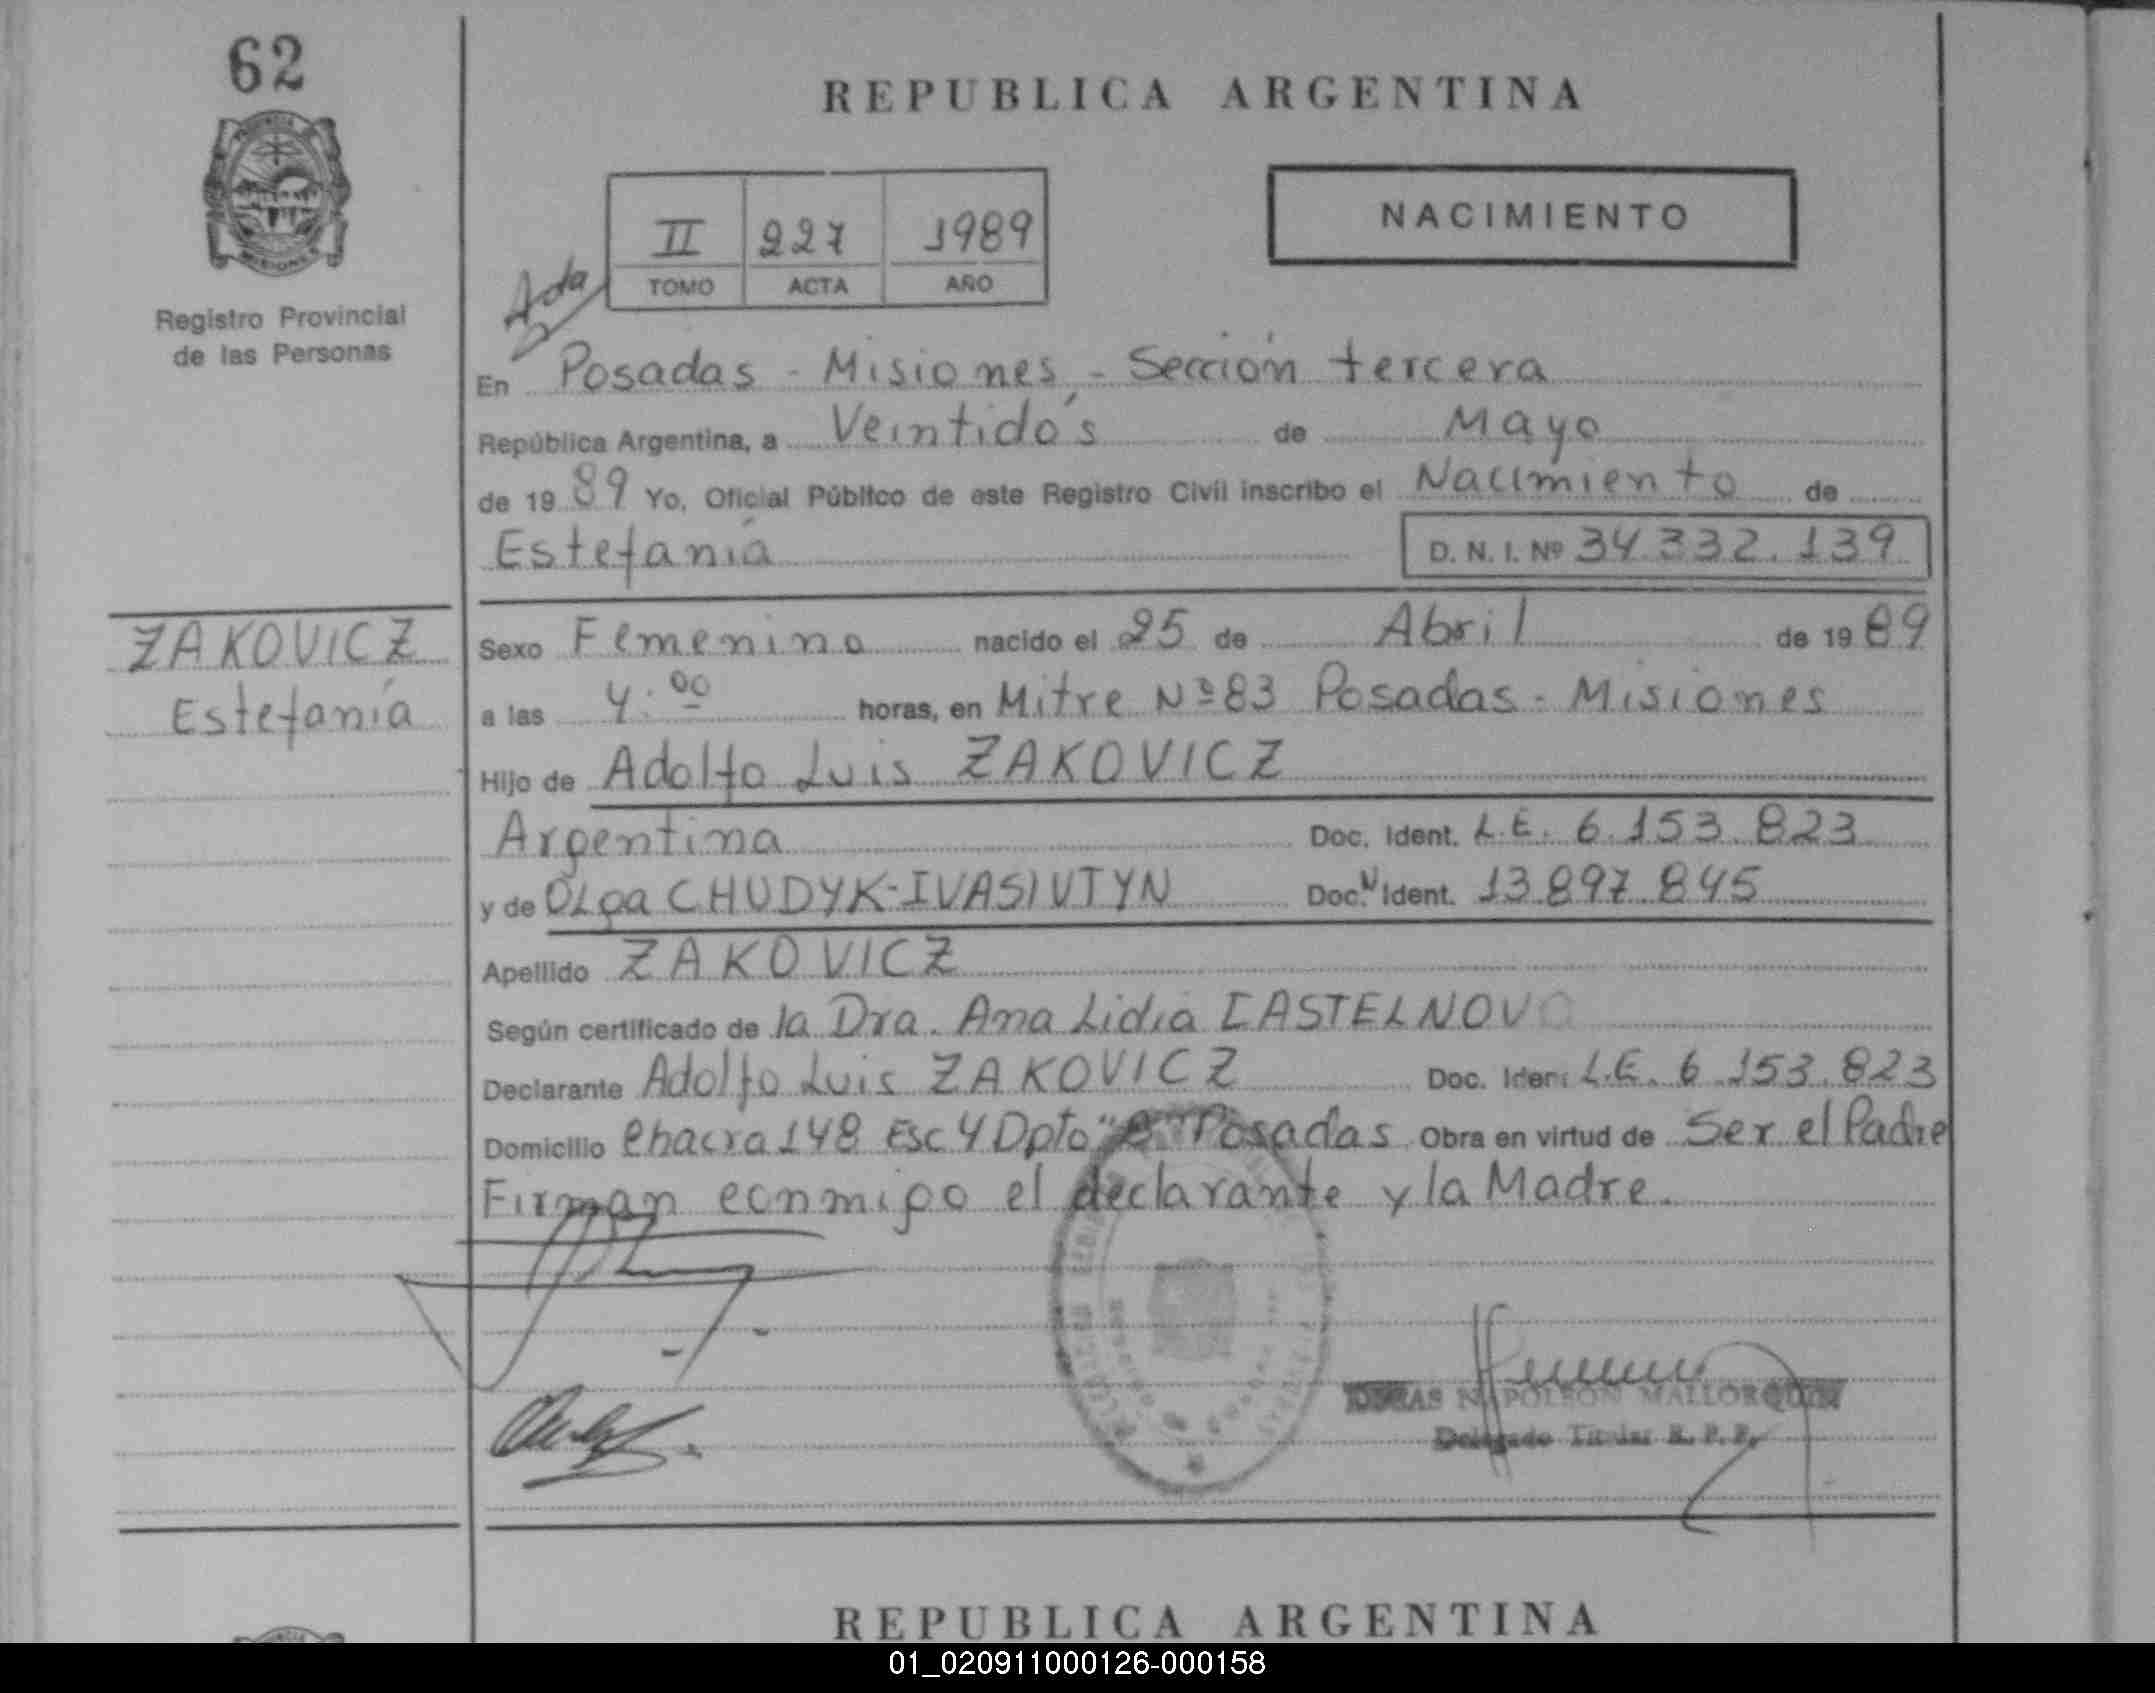 62
REPUBLICA ARGENTINA
Registro Provincial
de las Personas
II 227 1989
TOMO ACTA AÑO
NACIMIENTO
En Posadas - Misiones - Sección tercera
República Argentina, a Veintidós de Mayo
de 1989 Yo, Oficial Público de este Registro Civil inscribo el Nacimiento de
Estefanía D. N. I. Nº 34.332.139
ZAKOVICZ
Estefanía
Sexo Femenino nacido el 25 de Abril de 1989
a las 4:00 horas, en Mitre Nº 83 Posadas - Misiones
Hijo de Adolfo Luis ZAKOVICZ
Argentina Doc. Ident. L.E. 6.153.823
y de OLga CHUDYK-IVASIUTYN Doc. Ident. 13.897.845
Apellido ZAKOVICZ
Según certificado de la Dra. Ana Lidia CASTELNOVO
Declarante Adolfo Luis ZAKOVICZ Doc. Iden: L.E. 6.153.823
Domicilio Chacra 148 Esc 4 Dpto Posadas Obra en virtud de Ser el Padre
Firman conmigo el declarante y la Madre.
NAPOLEON MALLORQUIN
Delegado Titular R. P. P.
REPUBLICA ARGENTINA
01_020911000126-000158